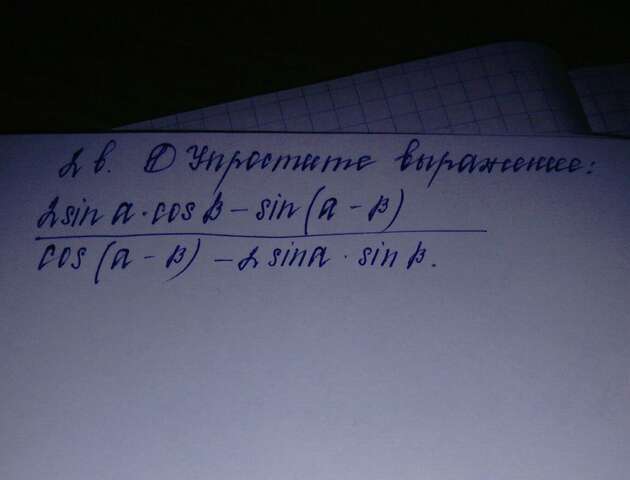 2 в. ① Упростите выражение:
2 sin α · cos β - sin (α - β)
cos (α - β) - 2 sin α · sin β.